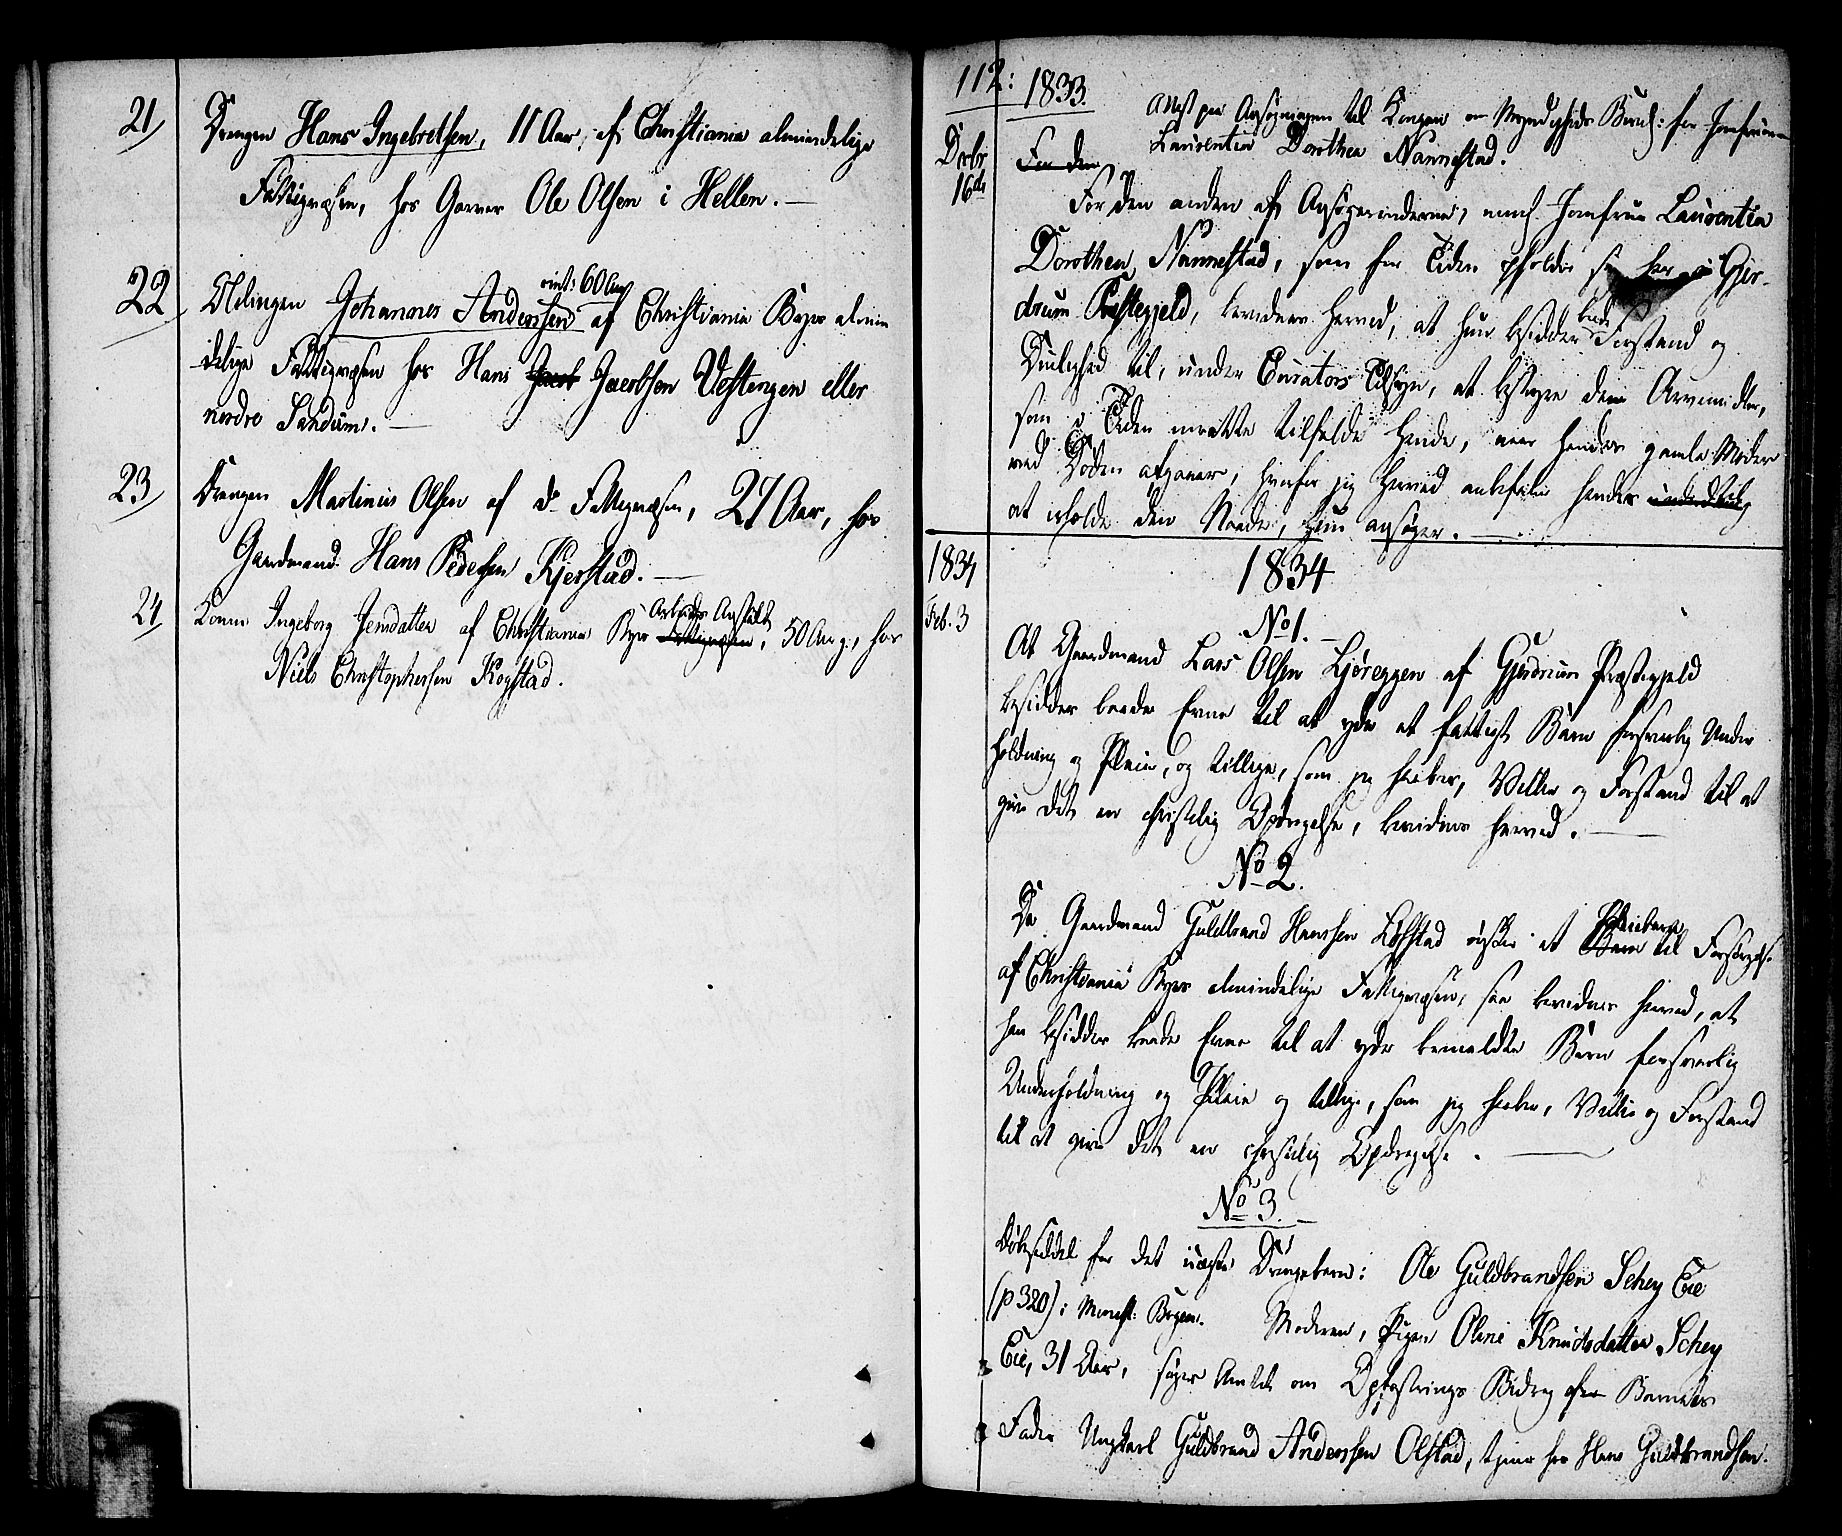 21/ Drengen Hans Ingebretsen, 11 Aar, af Christiania almindelige
Fattigvæsen, hos Garver Ole Olsen i Hellen. —
22 Oldingen Johannes Anderssen omtr: 60 Aar af Christiania Byes almin
delige Fattigvæsen hos Hans Jacob Jacobsen Vestengen eller
nordre Sandum. —
23/ Drengen Martinius Olsen af do Fattigvæsen, 27 Aar, hos
Gaardmand Hans Pedersen Kjerstad. —
24/ Konen Ingeborg Jensdatter af Christiania Byes Arbeids Anstalt Fattigvæsen, 50 Aar g., hos
Niels Christophersen Kogstad.
112: 1833. Attest paa Ansøgningen til Kongen om Myndigheds Bevil: for Jomfruen
Laurentia Dorothea Nannestad.
Decbr 16de For den
For den anden af Ansøgerinderne, nemlig Jomfrue Laurentia
Dorothea Nannestad, som for Tiden opholder sig her i Gjer-
drum Præstegjeld, bevidnes herved, at hun besidder baade Forstand og
Duelighed til, under Curators Tilsyn, at bestyre den Arvemidler,
som i Tiden maatte tilfalde hende, naar hendes gamle Moder
ved Døden afgaaer, hvorfor jeg herved anbefaler hendes underdanig
at erholde den Naade, hun ansøger. —
1834 1834
Feb. 3 No 1. —
At Gaardmand Lars Olsen Ljøreggen af Gjerdrum Præstegjeld
besidder baade Evne til at yde et fattigt Barn forsvarlig Under
holdning og Pleie, og tillige, som jeg haaber, Villie og Forstand til at
give det en christelig Opdragelse, bevidnes herved. —
No 2.
Da Gaardmand Guldbrand Hanssen Lofstad ønsker et Pleiebarn Barn til Forsørgelse
af Christiania Byes almindelige Fattigvæsen, saa bevidnes herved, at
han besidder baade Evne til at yde bemeldte Barn forsvarlig
Underholdning og Pleie og tillige, som jeg haaber, Villie og Forstand
til at give det en christelig Opdragelse. —
No 3. —
Døbeseddel for det uægte Drengebarn: Ole Guldbrandsen Schey Eie
(p 320) i Minist: Bogen. Moderen, Pigen Oline Knudsdatter Schey
Eie, 31 Aar, søger Amtet om Opfostrings Bidrag af Barnets
Fader Ungkarl Guldbrand Anderssen Olstad, tjener hos Hans Guldbrandsen.